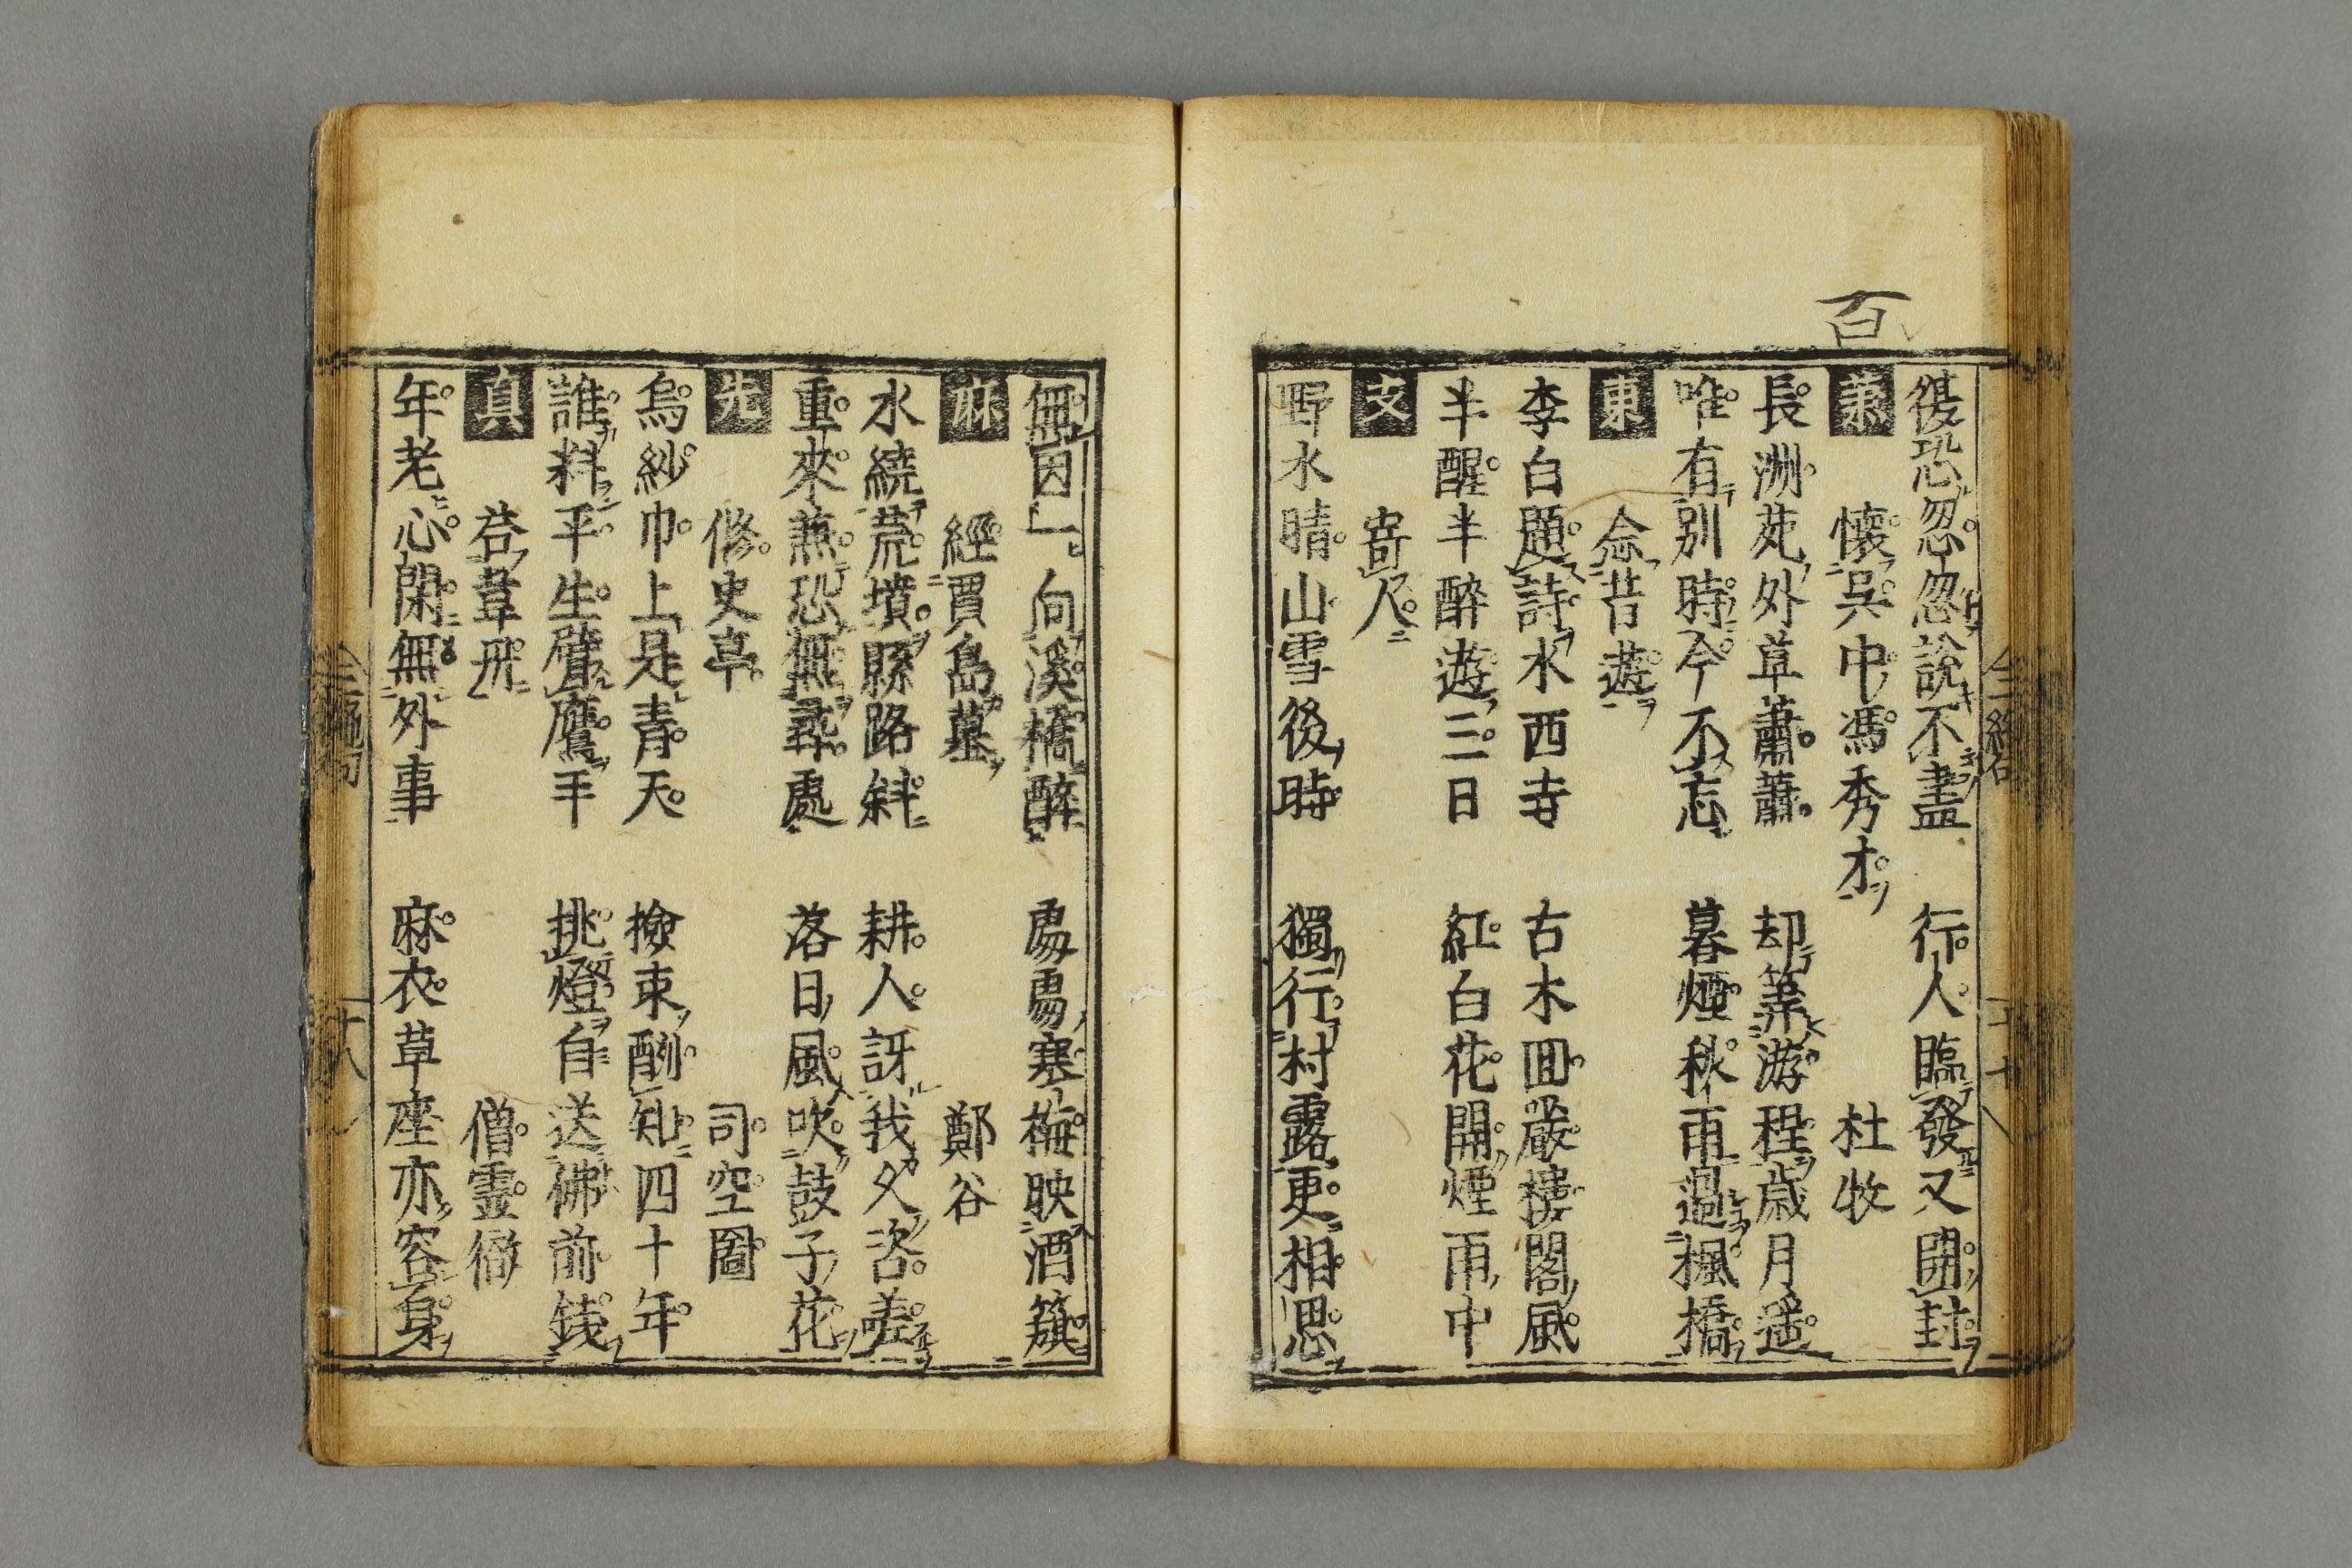 百
復恐忽忽說不盡 行人臨發又開封
蕭 懷吳中馮秀才 杜牧
長洲苑外草蕭蕭 却筭游程歳月遥
唯有别時今不忘 暮煙秋雨過楓橋
東 念昔遊
李白題詩水西寺 古木回巖樓閣風
半醒半醉遊三日 紅白花開煙雨中
支 寄人
野水晴山雪後時 獨行村露更相思
無因一向溪橋醉 處處寒梅映酒簱
麻 經賈島墓 鄭谷
水繞荒墳縣路斜 耕人訝我久咨差
重來兼恐無尋處 落日風吹鼓子花
先 修史亭 司空圖
烏紗巾上是青天 撿束酬知四十年
誰料平生臂鷹手 挑燈自送佛前銭
真 荅韋丹 僧霊徹
年老心閑無外事 麻衣草座亦容身
十八